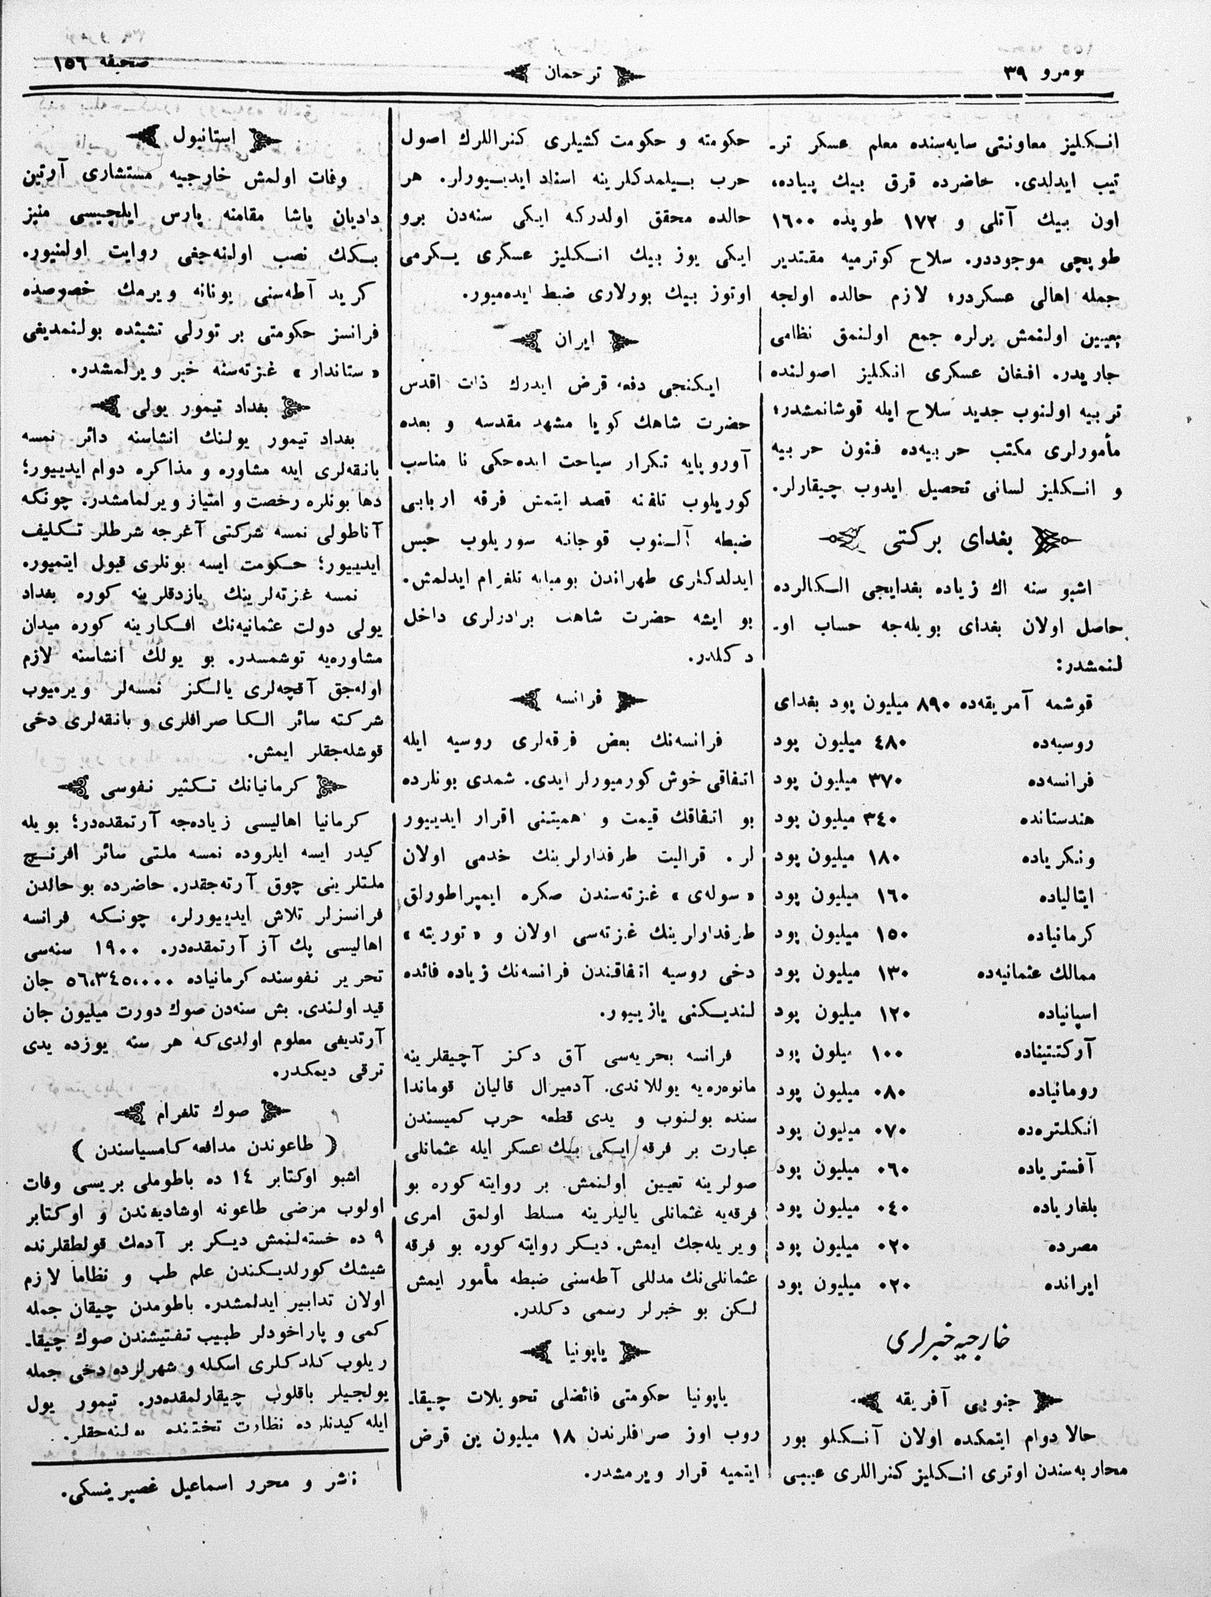 نومرو ٣٩
ترجمان
صحیفه ١٥٦
انـكلیز معاونتی سایه‌سنده معلم عسكر تر-
تیب ایدلدی. حاضرده قرق بیك پیاده،
اون بیك آتلی و ١٧٢ طوپده ١٦٠٠
طوپچی موجوددر. سلاح كوترمیه مقتدیر
جمله اهالی عسكردر؛ لازم حالده اولجه
یعیین اولنمش یرلره جمع اولنمق نظامی
جاریدر. افغان عسكری انكلیز اصولنده
تربیه اولنوب جدید سلاح ایله قوشانمشدر؛
مأمورلری مكتب حربیه‌ده فنون حربیه
و انـكلیز لسانی تحصیل ایدوب چیقارلر.
بغدای بركتی
اشبو سنه اك زیاده بغدایجی الـكالرده
حاصل اولان بغدای بویله‌جه حساب او-
لنمشدر:
قوشمه آمریقه‌ده ٨٩٠ میلیون پود بغدای
روسیه‌ده ٤٨٠ میلیون پود
فرانسه‌ده ٣٧٠ میلیون پود
هندستانده ٣٤٠ میلیون پود
ونكریاده ١٨٠ میلیون پود
ایتالیاده ١٦٠ میلیون پود
كرمانیاده ١٥٠ میلیون پود
ممالك عثمانیه‌ده ١٣٠ میلیون پود
اسپانیاده ١٢٠ میلیون پود
آركنتیناده ١٠٠ میلون پود
رومانیاده ٠٨٠ میلیون پود
انكلتره‌ده ٠٧٠ میلیون پود
آفستریاده ٠٦٠ میلیون پود
بلغاریاده ٠٤٠ میلیون پود
مصرده ٠٢٠ میلیون پود
ایرانده ٠٢٠ میلیون پود
خارجیه خبرلری
جنوبی آفریقه
حالا دوام ایتمكده اولان آنـكلو بور
محاربه‌سندن اوتری انـكلیز كنراللری عیبی
حكومته و حكومت كشیلری كنراللرك اصول
حرب بیلمدكلرینه اسناد ایدییورلر. هر
حالده محقق اولدركه ایكی سنه‌دن برو
ایكی یوز بیك انـكلیز عسكری یـكرمی
اوتوز بیك بورلاری ضبط ایده‌میور.
ایران
ایـكنجی دفعه قرض ایدرك ذات اقدس
حضرت شاهك كویا مشهد مقدسه و بعده
آوروپایه تكرار سیاحت ایده‌حكی نا مناسب
كوریلوب تلفنه قصد ایتمش فرقه اربابی
ضبطه آلـنوب قوجانه سوریلوب حبس
ایدلدكلری طهراندن بومبایه تلغرام ایدلمش.
بو ایشه حضرت شاهك برادرلری داخل
دكلدر.
فرانسه
فرانسه‌نك بعض فرقه‌لری روسیه ایله
اتفاقی خوش كورمیورلر ایدی. شمدی بونلرده
بو اتفاقك قیمت و اهمیتنی اقرار ایدییور
لر. قرالیت طرفدارلرینك خدمی اولان
« سوله‌ی » غزته‌سندن صكره ایمپراطورلق
طرفدارلرینك غزته‌سی اولان و « توریته »
دخی روسیه اتفاقندن فرانسه‌نك زیاده فائده
لندیـكنی یازییور.
فرانسه بحریه‌سی آق دكز آچیقلرینه
مانوه‌ره‌یه یوللاندی. آدمیرال قالیان قوماندا
سنده بولنوب و یدی قطعه حرب كمیسندن
عبارت بر فرقه ایـكی بیك عسكر ایله عثمانلی
صولرینه تعیین اولنمش. بر روایته كوره بو
فرقه‌یه عثمانلی یالیلرینه مسلط اولمق امری
ویریله‌جك ایمش. دیكر روایته كوره بو فرقه
عثمانلی‌نك مدللی آطه‌سنی ضبطه مأمور ایمش
لـكن بو خبرلر رسمی دكلدر.
یاپونیا
یاپونیا حكومتی فائضلی تحویلات چیقا-
روب اوز صرافلرندن ١٨ میلیون ین قرض
ایتمیه قرار ویرمشدر.
استانبول
وفات اولمش خارجیه مستشاری آرتین
دادیان پاشا مقامنه پارس ایلچیسی منیر
بـكك نصب اولنه‌جغی روایت اولنیور.
كرید آطه‌سنی یونانه ویرمك خصوصنده
فرانسز حكومتی بر تورلی تشبثده بولنمدیغی
« ستاندار » غزته‌سنه خبر ویرلمشدر.
بغداد تیمور یولی
بغداد تیمور یولنك انشاسنه دائر نمسه
بانقه‌لری ایله مشاوره و مذاكره دوام ایدییور؛
دها بونلره رخصت و امتیاز ویرلمامشدر. چونكه
آناطولی نمسه شركتی آغرجه شرطلر تـكلیف
ایدییور؛ حـكومت ایسه بونلری قبول ایتمیور.
نمسه غزته‌لرینك یازدقلرینه كوره بغداد
یولی دولت عثمانیه‌نك افـكارینه كوره میدان
مشاوره‌یه توشمسدر. بو یولك انشاسنه لازم
اوله‌جق آقچه‌لری یالـكز نمسه‌لر ویره‌میوب
شركته سائر الـكا صرافلری و بانقه‌لری دخی
قوشله‌جقلر ایمش.
كرمانیانك تـكثیر نفوسی
كرمانیا اهالیسی زیاده‌جه آرتمقده‌در؛ بویله
كیدر ایسه ایلروده نمسه ملتی سائر افرنـج
ملتلرینی چوق آرته‌جقدر. حاضرده بو حالدن
فرانسزلر تلاش ایدییورلر، چونـكه فرانسه
اهالیسی پك آز آرتمقده‌در. ١٩٠٠ سنه‌سی
تحریر نفوسنده كرمانیاده ٥٦،٣٤٥،٠٠٠ جان
قید اولندی. بش سنه‌دن صوك دورت میلیون جان
آرتدیغی معلوم اولدی‌كه هر سنه یوزده یدی
ترقی دیمكدر.
صوك تلغرام
( طاعوندن مدافعه كامسیاسندن )
اشبو اوكتابر ١٤ ده باطوملی بریسی وفات
اولوب مرضی طاعونه اوشادیغندن و اوكتابر
٩ ده خسته‌لنمش دیكر بر آدمك قولطقلرنده
شیشك كورلدیـكندن علم طب و نظاما لازم
اولان تدابیر ایدلمشدر. باطومدن چیقان جمله
كمی و پاراخودلر طبیب تفتیشندن صوك چیقا-
ریلوب كلدكلری اسكله و شهرلرده دخی جمله
یولجیلر باقلوب چیقارلمقده‌در. تیمور یول
ایله كیدنلرده نظارت تختنده
ناشر و محرر اسماعیل غصپرینسكی.